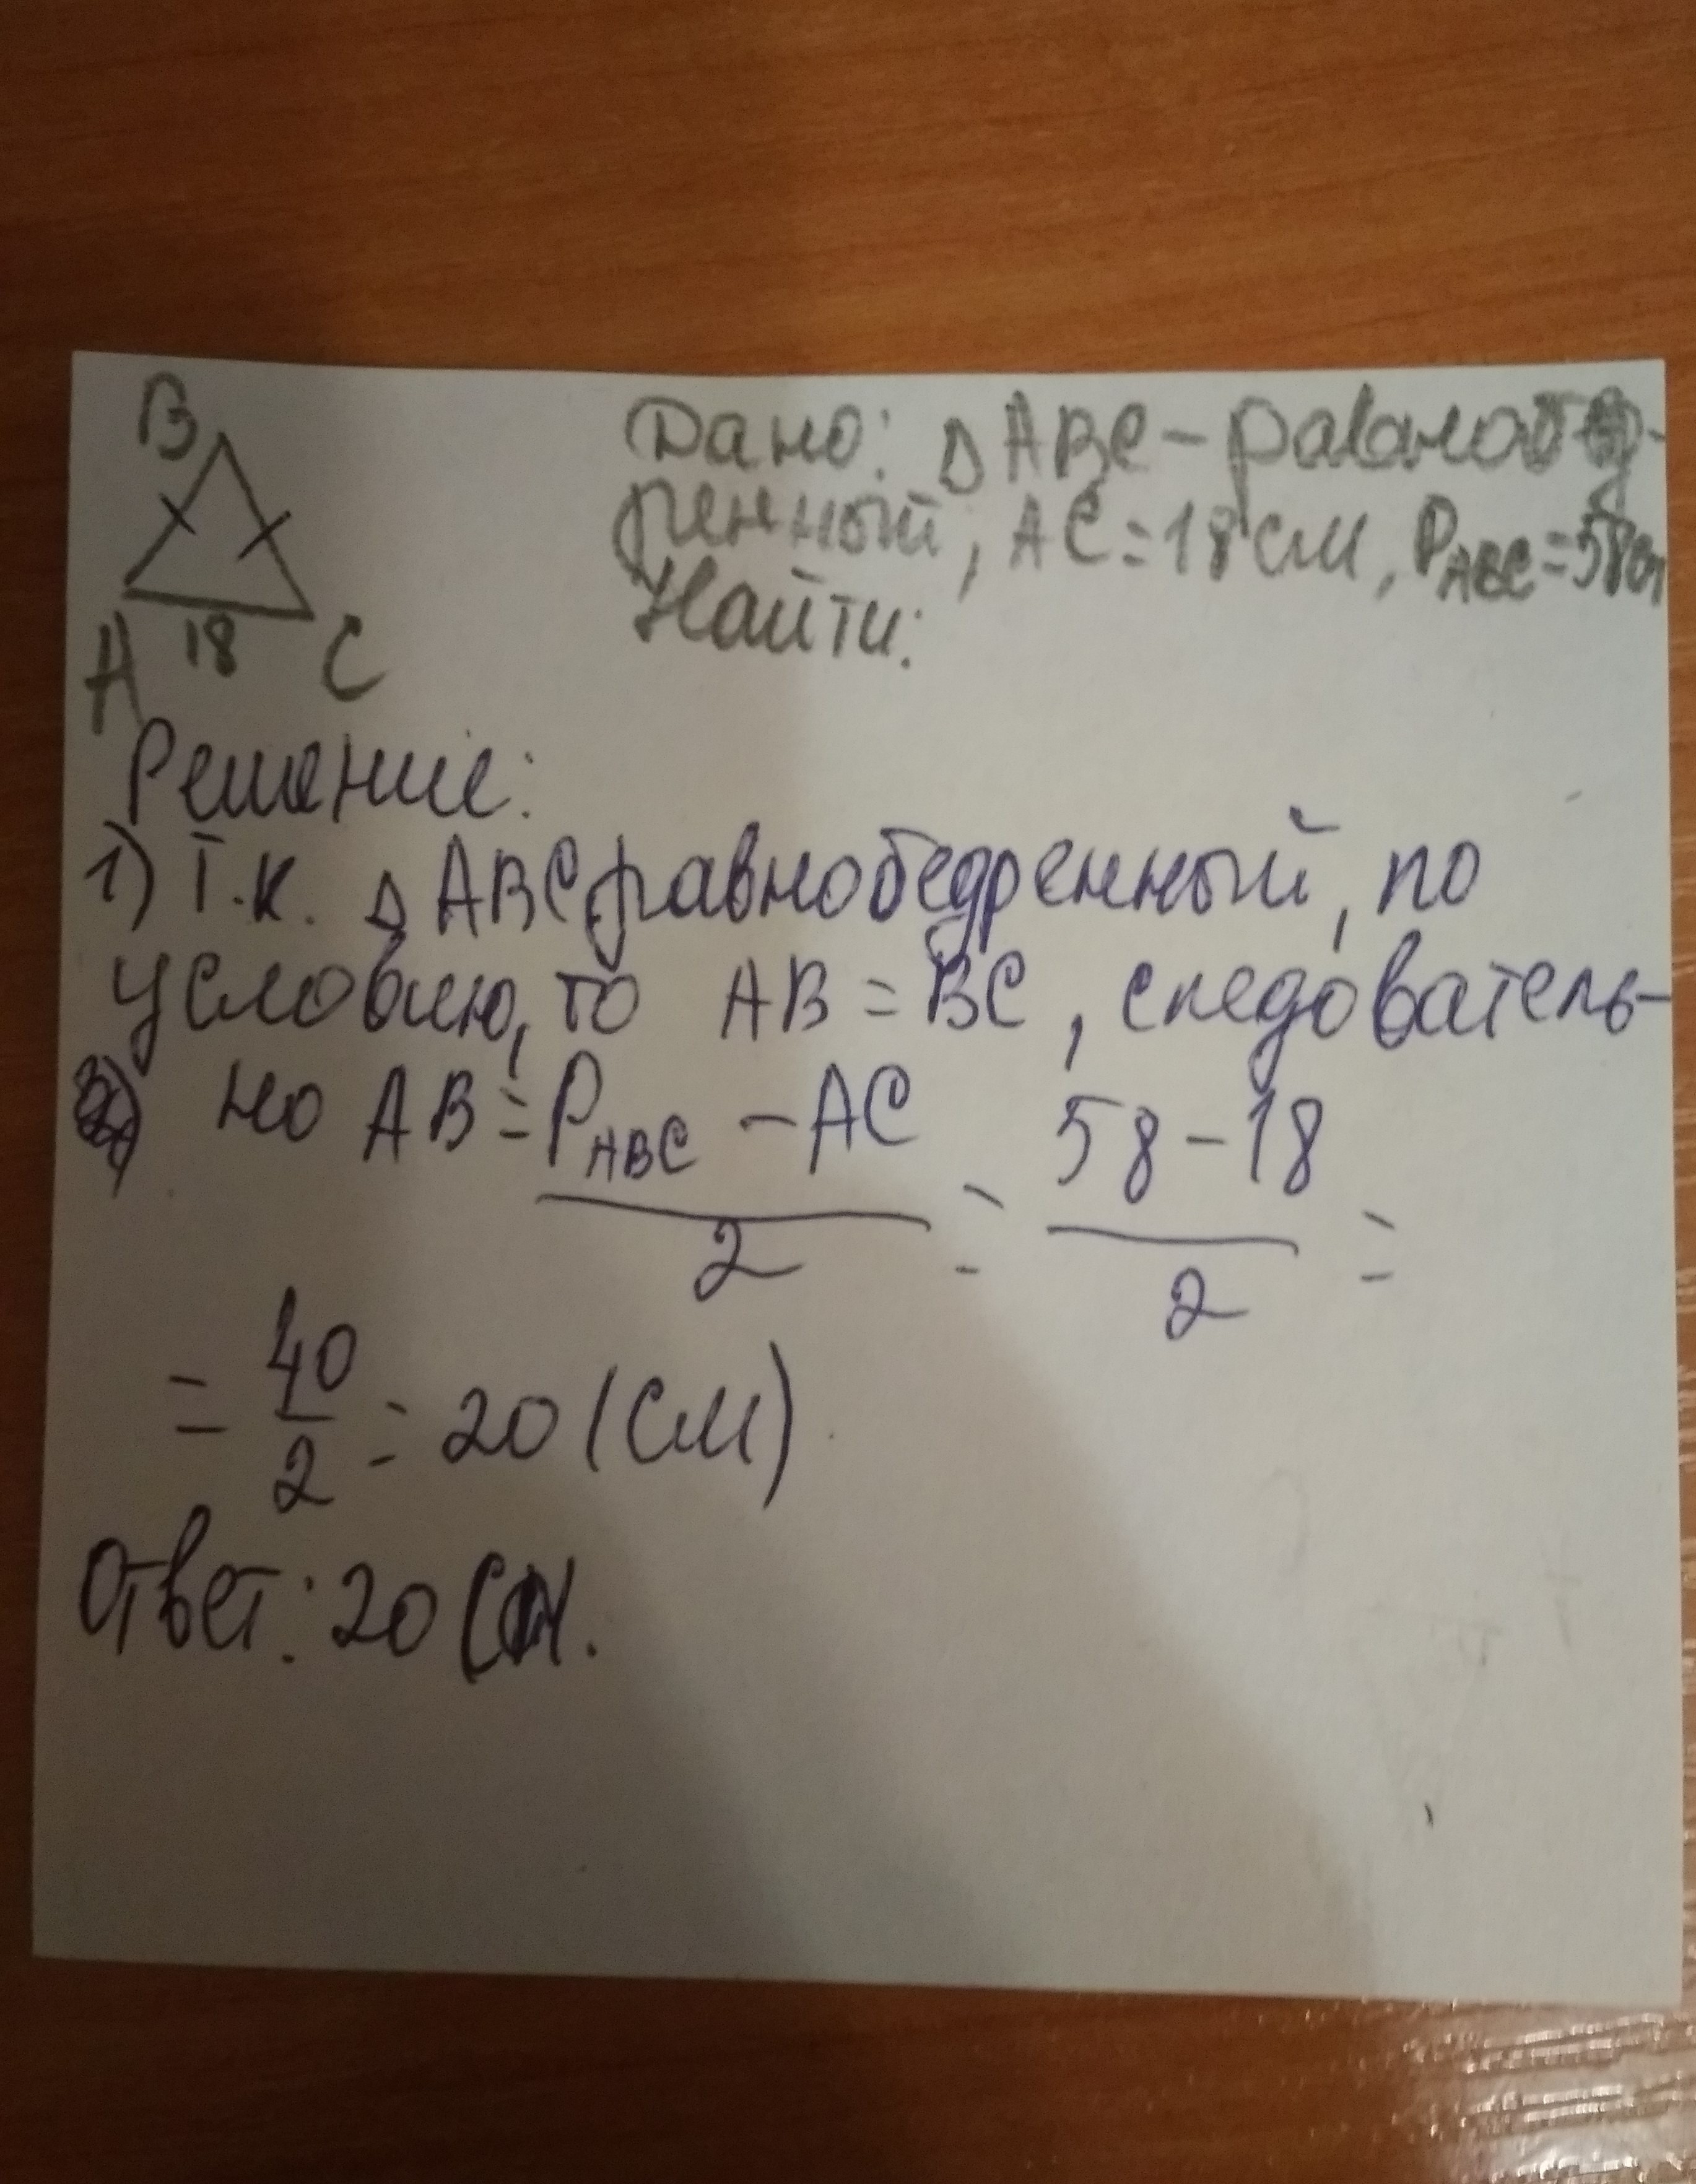 B
A 18 C
Дано: Δ ABC - равнобед-
ренный, AC = 18 см, P_ABC = 58 см
Найти:
Решение:
1) Т.к. Δ ABC равнобедренный, по
условию, то AB = BC, следователь-
но AB = (P_ABC - AC)/2 = (58 - 18)/2 =
= 40/2 = 20 (см)
Ответ: 20 см.